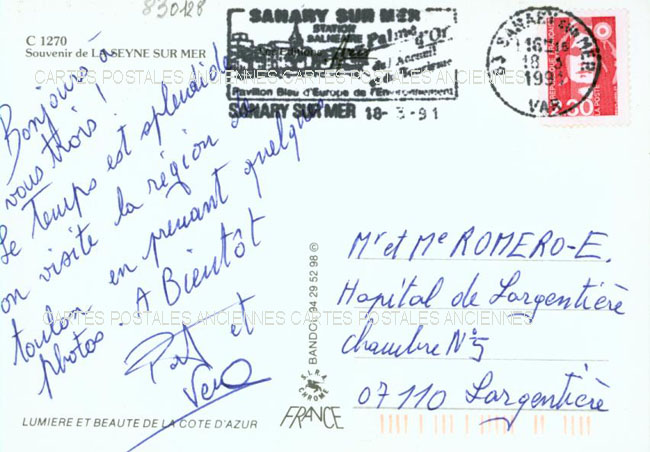 830128
C 1270
Souvenir de LA SEYNE SUR MER
SANARY SUR MER
STATION
BALNEAIRE
Palme
d'Or
de l'Accueil
et
du Tourisme
Pavillon Bleu d'Europe de l'Environnement
SANARY SUR MER 18-3-91
83 SANARY SUR MER
18-3
1991
VAR
LA POSTE
Bonjour à
vous trois !
Le temps est splendide
on visite la région de
toulon en prenant quelques
photos. A Bientôt
et
CARTES POSTALES ANCIENNES CARTES POSTALES ANCIENNES
CARTES POSTALES ANCIENNES CARTES POSTALES ANCIENNES
Mr et Me ROMERO-E.
Hopital de Largentière
chambre N°5
07110 Largentière
BANDOL 94 29 52 98 ©
E.L.R.A.
CHROME
FRANCE
LUMIERE ET BEAUTE DE LA COTE D'AZUR